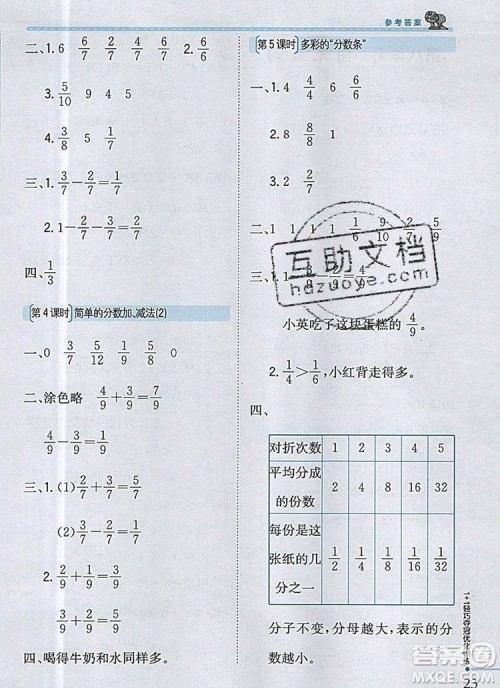 参考答案
二、1. 6 6/7 4/7 2/7 2. 6/7
3. 5/10 9 4 5
4. 3/8 5 4/7
三、1. 3/7-2/7=1/7
2. 1-2/7-3/7=2/7
四、1/3
第4课时 简单的分数加、减法(2)
一、0 3/7 5/12 1/5 5/8 0
二、涂色略 4/9+4/9=8/9
4/9-4/9=0
三、1. (1) 2/7+3/7=5/7
(2) 3/7-2/7=1/7
3/9+3/9=6/9
四、喝得牛奶和水同样多。
第5课时 多彩的“分数条”
一、1. 4
2. 8 8/8 1
3. 2 2/7
二、1 1 1 1/6 9/10 5/9
小英吃了这块蛋糕的
2. 1/4>1/6,小红背走得多。
四、
对折次数 1 2 3 4 5
平均分成的份数 2 4 8 16 32
每份是这张纸的几分之一 1/2 1/4 1/8 1/16 1/32
分子不变,分母越大,表示的分数越小。
互助文档
hdzuoye.com
1+1轻巧夺冠优化训练
23
作业帮答案
MXQE.COM